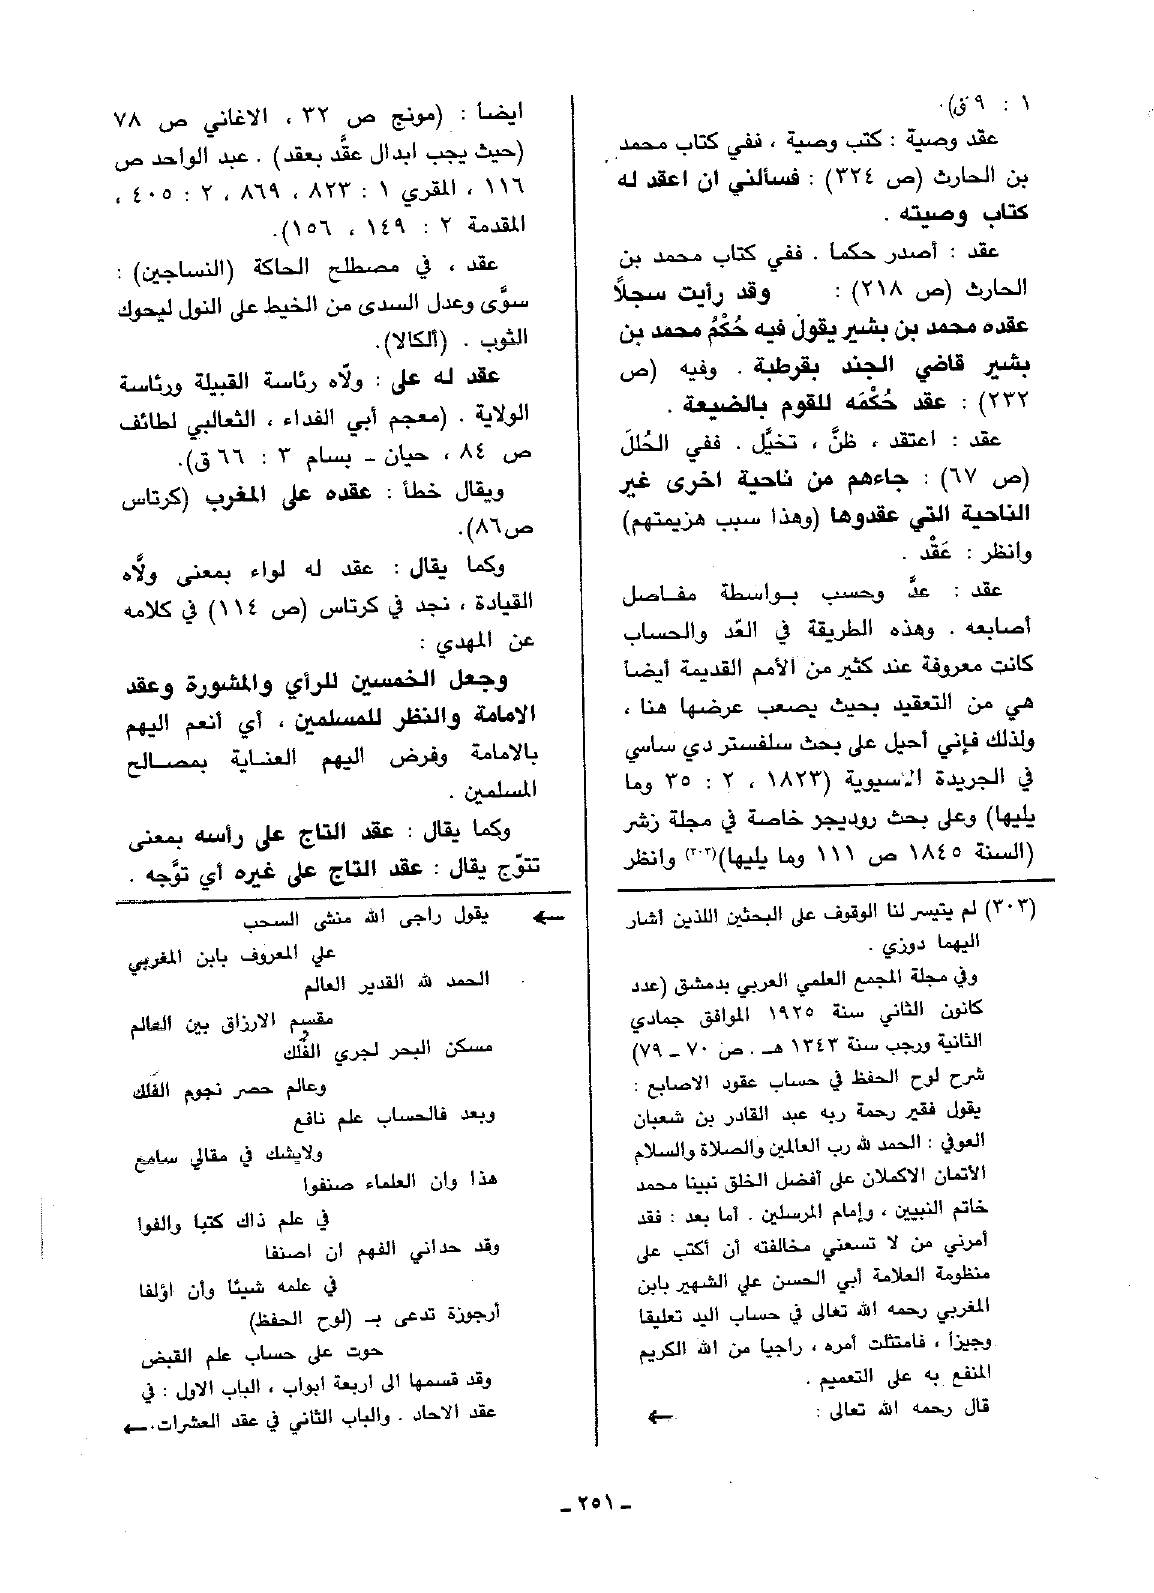 ١ : ٩ ق).
عقد وصية : كتب وصية ، ففي كتاب محمد
بن الحارث (ص ٣٢٤) : فسألني ان اعقد له
كتاب وصيته .
عقد : أصدر حكما . ففي كتاب محمد بن
الحارث (ص ٢١٨) : وقد رأيت سجلاً
عقده محمد بن بشير يقول فيه حُكْمُ محمد بن
بشير قاضي الجند بقرطبة . وفيه (ص
٢٣٢) : عقد حُكْمَه للقوم بالضيعة .
عقد : اعتقد ، ظنَّ ، تخيَّل . ففي الحُلَلَ
(ص ٦٧) : جاءهم من ناحية اخرى غير
الناحية التي عقدوها (وهذا سبب هزيمتهم)
وانظر : عَقْد .
عقد : عدَّ وحسب بواسطة مفاصل
أصابعه . وهذه الطريقة في العّد والحساب
كانت معروفة عند كثير من الأمم القديمة أيضاً
هي من التعقيد بحيث يصعب عرضها هنا ،
ولذلك فإني أحيل على بحث سلفستر دي ساسي
في الجريدة الآسيوية (١٨٢٣ ، ٢ : ٣٥ وما
يليها) وعلى بحث روديجز خاصة في مجلة زشر
(السنة ١٨٤٥ ص ١١١ وما يليها)(٣٠٣) وانظر
ايضاً : (مونج ص ٣٢ ، الاغاني ص ٧٨
(حيث يجب ابدال عقَّد بعقد) . عبد الواحد ص
١١٦ ، المقري ١ : ٨٢٣ ، ٨٦٩ ، ٢ : ٤٠٥ ،
المقدمة ٢ : ١٤٩ ، ١٥٦).
عقد ، في مصطلح الحاكة (النساجين) :
سوَّى وعدل السدى من الخيط على النول ليحوك
الثوب . (ألكالا).
عقد له على : ولّاه رئاسة القبيلة ورئاسة
الولاية . (معجم أبي الفداء ، الثعالبي لطائف
ص ٨٤ ، حيان - بسام ٣ : ٦٦ ق).
ويقال خطأ : عقده على المغرب (كرتاس
ص٨٦).
وكما يقال : عقد له لواء بمعنى ولَّاه
القيادة ، نجد في كرتاس (ص ١١٤) في كلامه
عن المهدي :
وجعل الخمسين للرأي والمشورة وعقد
الامامة والنظر للمسلمين ، أي أنعم اليهم
بالامامة وفرض اليهم العناية بمصالح
المسلمين .
وكما يقال : عقد التاج على رأسه بمعنى
تتوّج يقال : عقد التاج على غيره أي توَّجه .
(٣٠٣) لم يتيسر لنا الوقوف على البحثين اللذين أشار
اليهما دوزي .
وفي مجلة المجمع العلمي العربي بدمشق (عدد
كانون الثاني سنة ١٩٢٥ الموافق جمادي
الثانية ورجب سنة ١٣٤٣ هـ . ص ٧٠ - ٧٩)
شرح لوح الحفظ في حساب عقود الاصابع :
يقول فقير رحمة ربه عبد القادر بن شعبان
العوفي : الحمد لله رب العالمين والصلاة والسلام
الأتمان الاكملان على أفضل الخلق نبينا محمد
خاتم النبيين ، وإمام المرسلين . أما بعد : فقد
أمرني من لا تسعني مخالفته أن أكتب على
منظومة العلامة أبي الحسن علي الشهير بابن
المغربي رحمه الله تعالى في حساب اليد تعليقا
وجيزاً ، فامتثلت أمره ، راجيا من الله الكريم
المنفع به على التعميم .
قال رحمه الله تعالى : ←
← يقول راجى الله منشى السحب
علي المعروف بابن المغربي
الحمد لله القدير العالم
مقسم الارزاق بين العالم
مسكن البحر لجري الفُلْك
وعالم حصر نجوم الفَلك
وبعد فالحساب علم نافع
ولايشك في مقالي سامع
هذا وان العلماء صنفوا
في علم ذاك كتبا والفوا
وقد حداني الفهم ان اصنفا
في علمه شيئا وأن اؤلفا
أرجوزة تدعى بـ (لوح الحفظ)
حوت على حساب علم القبض
وقد قسمها الى اربعة ابواب ، الباب الاول : في
عقد الاحاد . والباب الثاني في عقد العشرات. ←
- ٢٥١ -